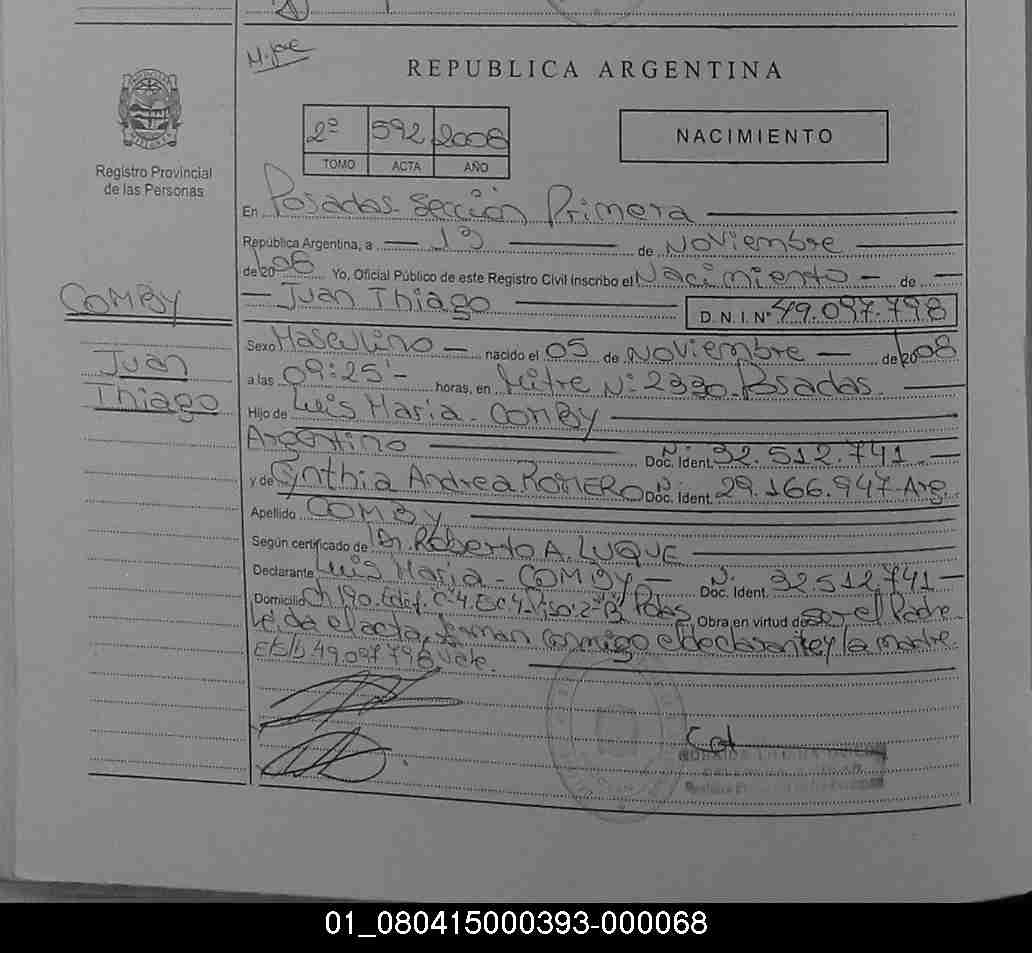 M. José
REPUBLICA ARGENTINA
2º 592 2008
TOMO ACTA AÑO
NACIMIENTO
Registro Provincial
de las Personas
En Posadas. Sección Primera
República Argentina, a 13 de Noviembre
de 2008 Yo, Oficial Público de este Registro Civil inscribo el Nacimiento - de -
- Juan Thiago D.N.I. Nº 49.097.798
COMBY
Juan
Thiago
Sexo Masculino - nacido el 05 de Noviembre - de 2008
a las 09:25'- horas, en Mitre Nº 2330. Posadas.
Hijo de Luis Maria. COMBY
Argentino Doc. Ident. Nº 32.512.741 -
y de Cynthia Andrea ROMERO Doc. Ident. Nº 29.166.947 Arg.
Apellido COMBY
Según certificado de Dr. Roberto A. LUQUE
Declarante Luis Maria - COMBY - Doc. Ident. Nº 32.512.741 -
Domicilio Ch 190. Edif. C 4. Esc 4. Piso: 2º "B" Pdas Obra en virtud de ser el Padre
Leída el acta, firman conmigo el declarante y la madre.
E/s/b 49.097.798 Vale.
01_080415000393-000068